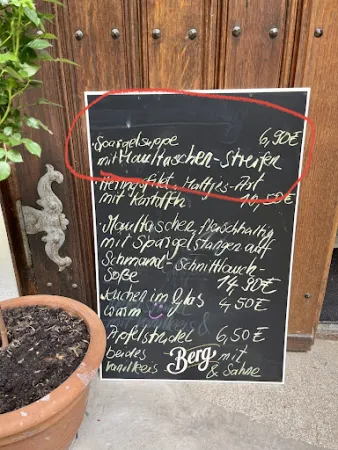 Spargelsuppe 6,90€
mit Maultaschen-Streifen
Heringsfilet, Mattjes-Art
mit Kartoffeln 10,50€
Maultaschen, fleischhaltig
mit Spargelstangen auf
Schmand-Schnittlauch-
Soße 14,90€
Kuchen im Glas 4,50€
warm
Apfelstrudel 6,50€
beides Berg mit
Vanilleeis & Sahne